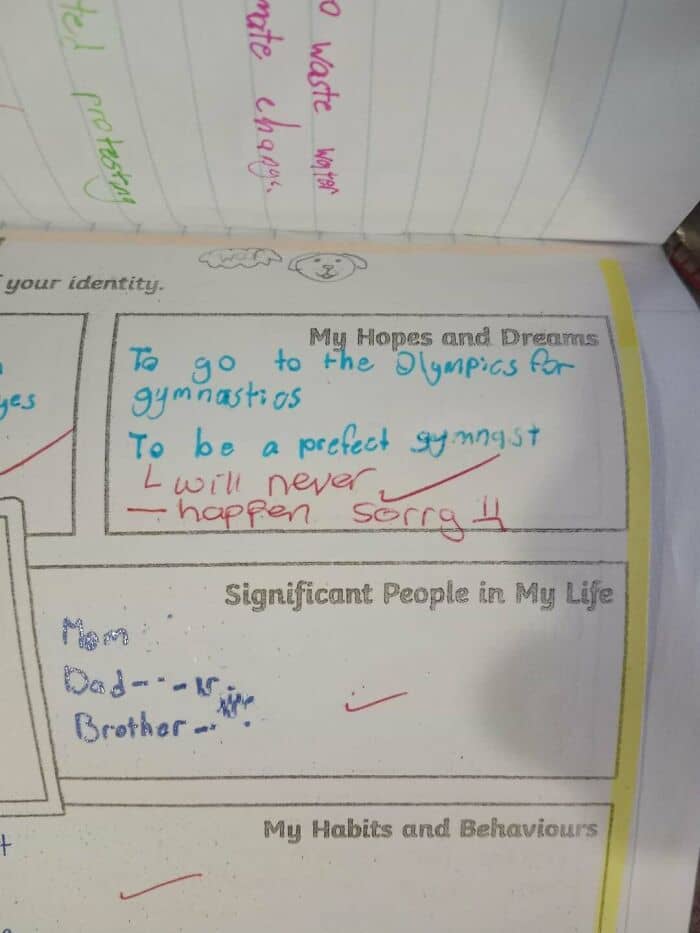 o waste water
mate change.
ted protesting
your identity.
yes
My Hopes and Dreams
To go to the Olympics for
gymnastics
To be a prefect gymnast
will never
happen sorry
Significant People in My Life
Mom
Dad
Brother
My Habits and Behaviours